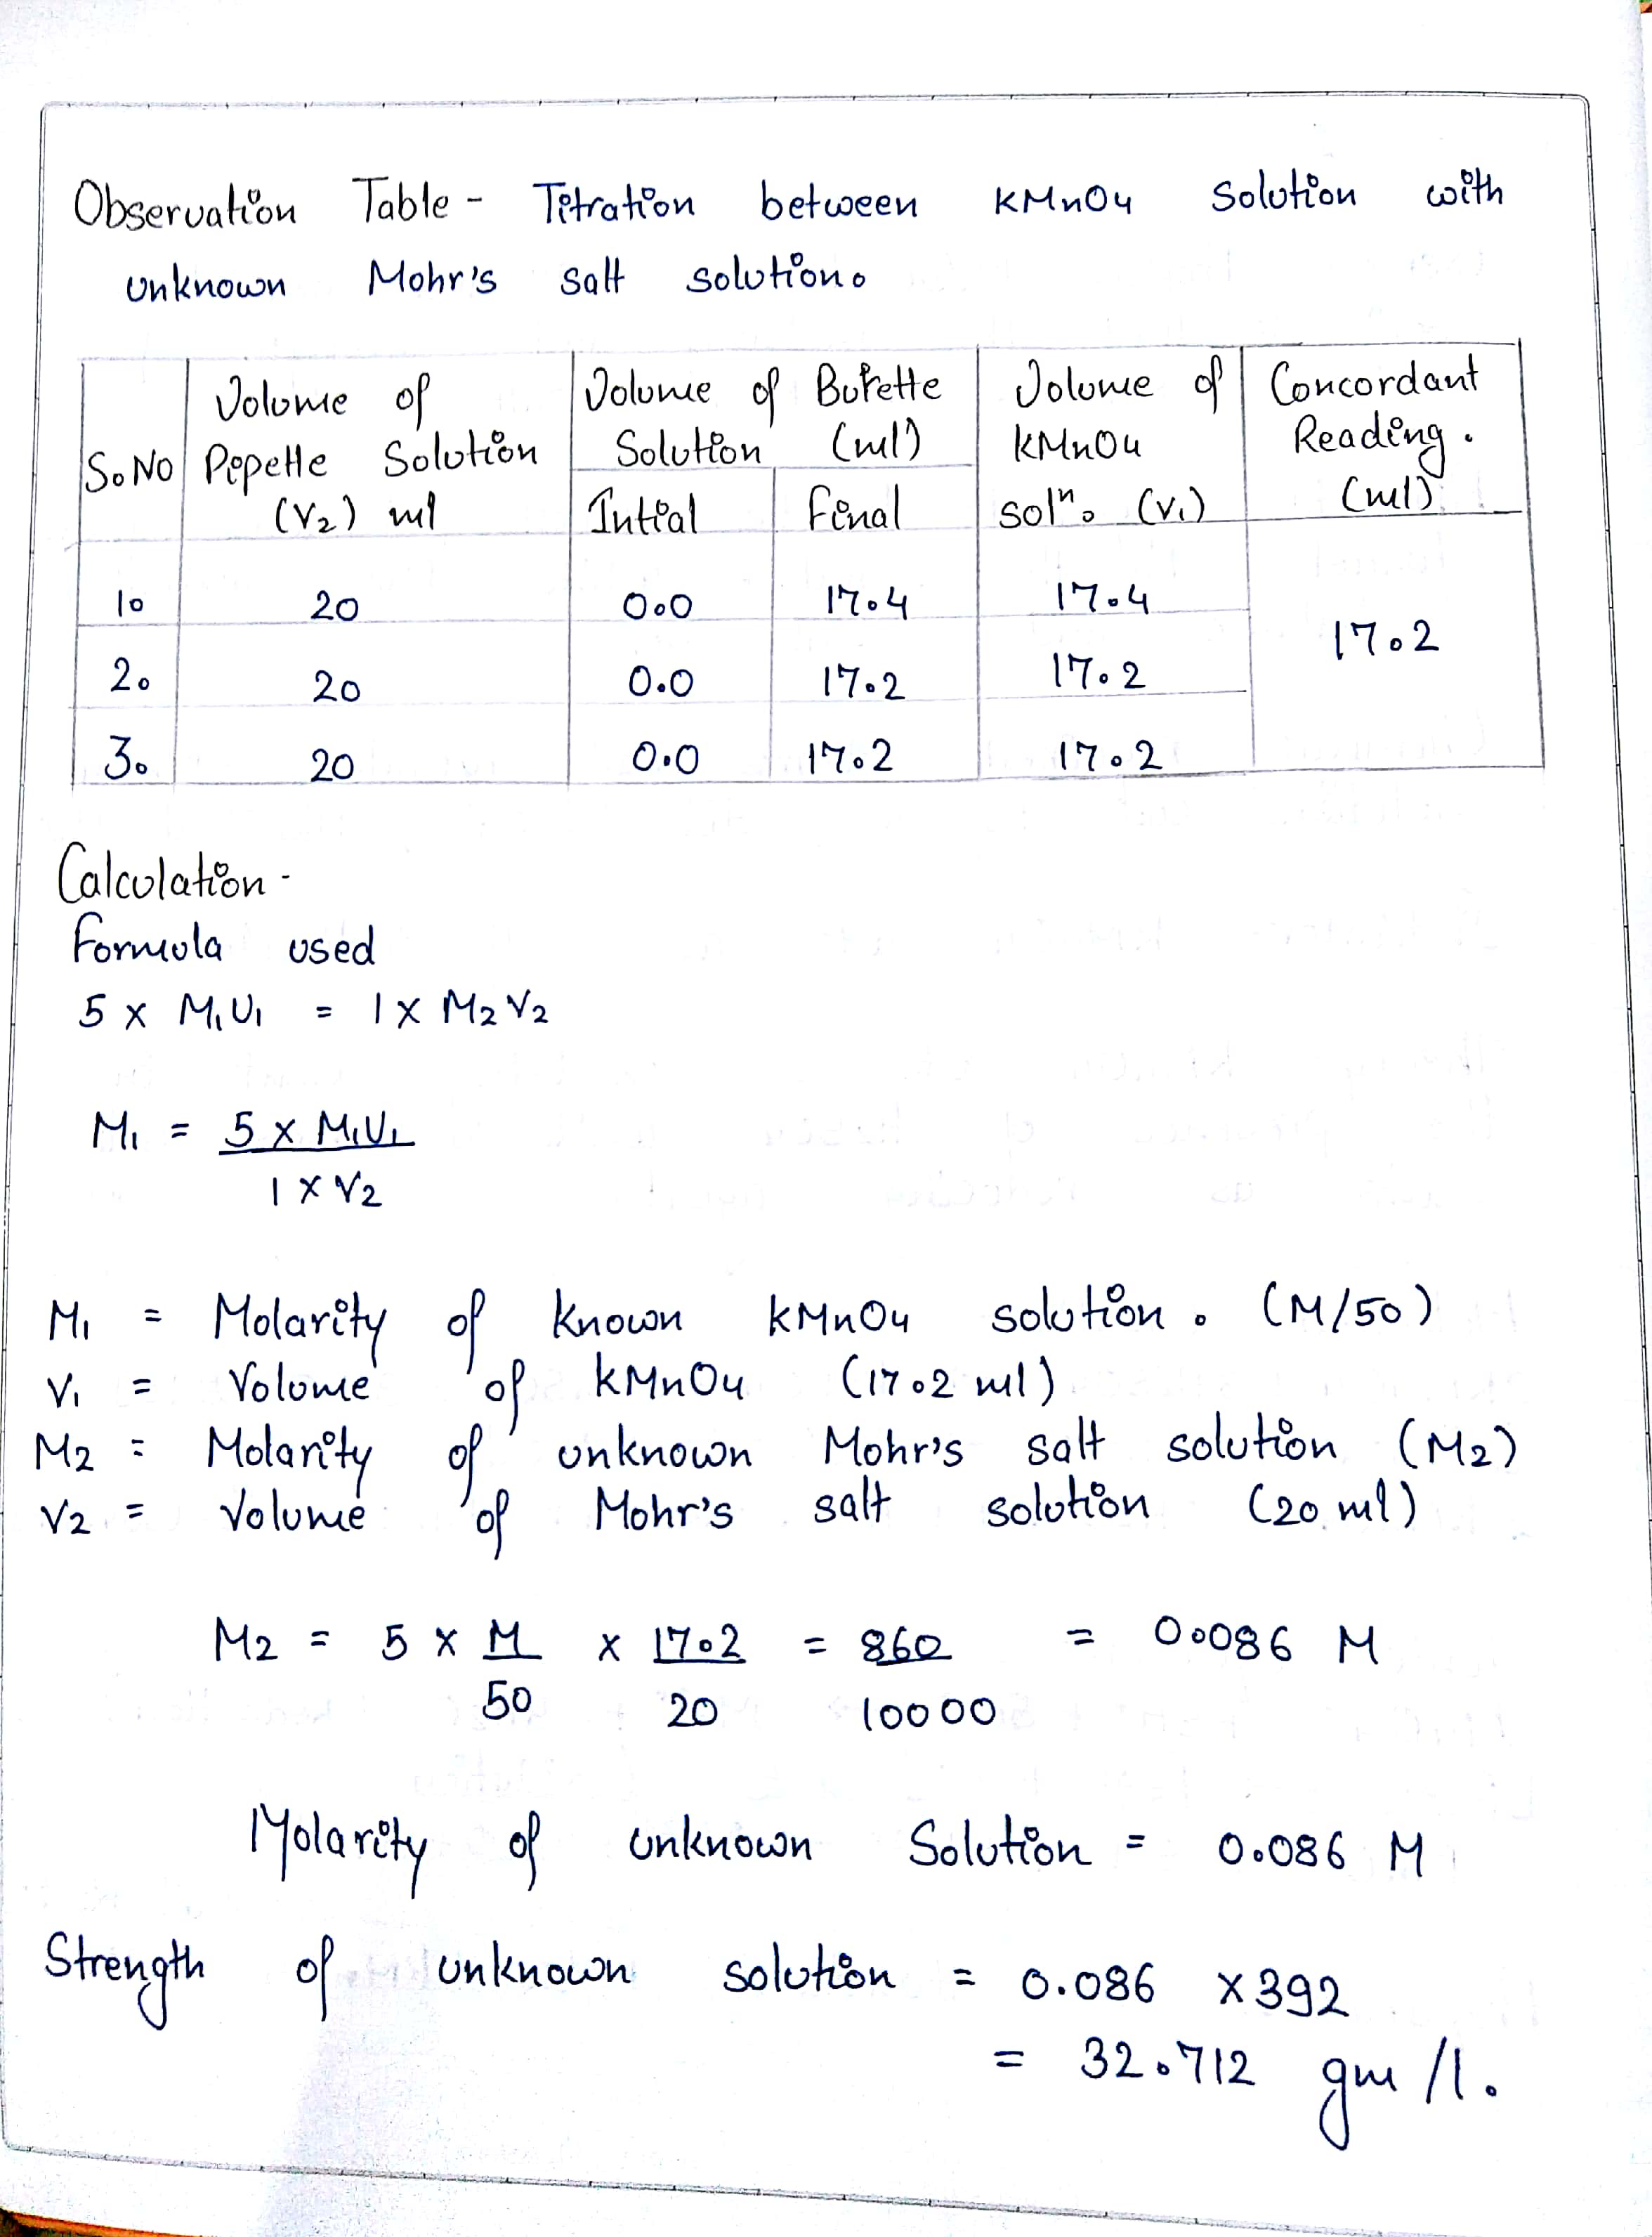 Observation Table - Titration between KMnO4 Solution with
unknown Mohr's salt solution.
S.No | Volume of Pipette Solution (V2) ml | Volume of Burette Solution (ml) | Volume of KMnO4 solⁿ. (V1) | Concordant Reading. (ml)
Intial | Final
1. 20 0.0 17.4 17.4
17.2
2. 20 0.0 17.2 17.2
3. 20 0.0 17.2 17.2
Calculation -
Formula used
5 x M1V1 = 1 x M2 V2
M1 = 5 x M1V1
1 x V2
M1 = Molarity of known KMnO4 solution. (M/50)
V1 = Volume of KMnO4 (17.2 ml)
M2 = Molarity of unknown Mohr's salt solution (M2)
V2 = Volume of Mohr's salt solution (20 ml)
M2 = 5 x M x 17.2 = 860 = 0.086 M
50 20 10000
Molarity of unknown Solution = 0.086 M
Strength of unknown solution = 0.086 x 392
= 32.712 gm /l.